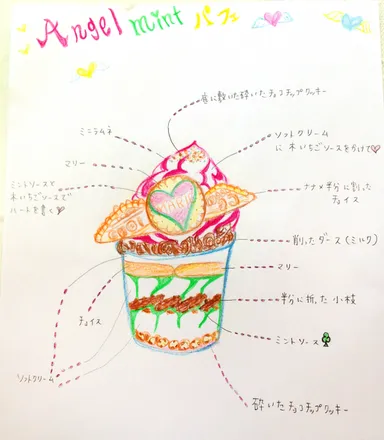 Angel mint パフェ
底に敷いた砕いたチョコチップクッキー
ミニラムネ
ソフトクリーム
に木いちごソースをかけて♡
マリー
ミントソースと
木いちごソースで
ハートを書く♡
ナナメ半分に割った
チョイス
削ったダース(ミルク)
マリー
半分に折った小枝
チョイス
ミントソース
ソフトクリーム
砕いたチョコチップクッキー